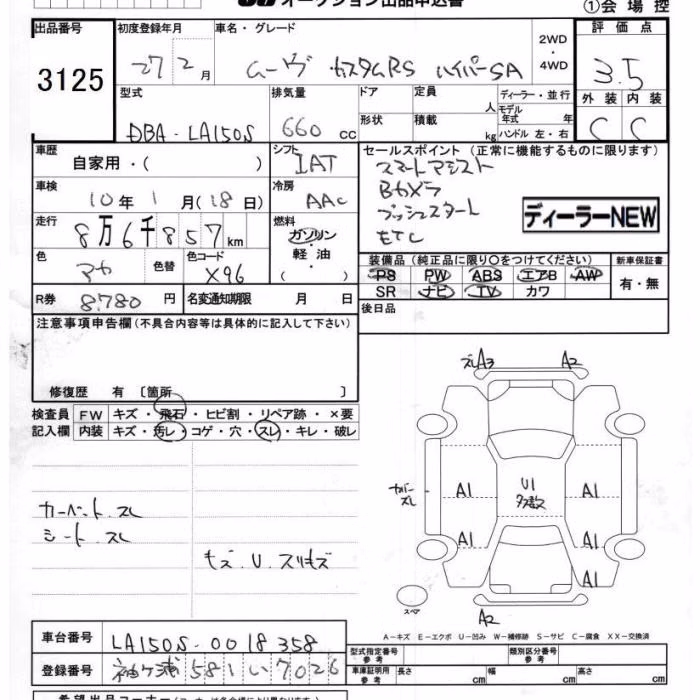 オークション出品申込書
①会場控
出品番号 初度登録年月 車名・グレード 2WD・4WD 評価点
3125 27 2月 ムーヴ カスタムRS ハイパーSA 3.5
型式 排気量 ドア 定員 人 ディーラー・並行 外装 内装
DBA-LA150S 660cc 形状 積載 kg モデル年式 年 ハンドル 左・右 C C
車歴 自家用・( ) シフト IAT セールスポイント(正常に機能するものに限ります)
スマートアシスト
車検 10年1月(18日) 冷房 AAC Bカメラ
プッシュスタート
ETC
ディーラーNEW
走行 8万6千857km 燃料 ガソリン・軽油・( )
色 アカ 色替 色コード X96 装備品(純正品に限り○をつけてください) 新車保証書
PS PW ABS エアB AW 有・無
SR ナビ TV カワ
R券 8,780円 名変通知期限 月 日 後日品
注意事項申告欄(不具合内容等は具体的に記入して下さい)
修復歴 有 〔箇所 〕
検査員記入欄 FW キズ・飛石・ヒビ割・リペア跡・×要
内装 キズ・汚レ・コゲ・穴・スレ・キレ・破レ
カーペット スレ
シート スレ
キズ.U.スリキズ
ズレA3 A2
A1 U1 A1
多数
スレ
A1 A1
A1
スペア
A2
A-キズ E-エクボ U-凹み W-補修跡 S-サビ C-腐食 XX-交換済
車台番号 LA150S-0018358
型式指定番号 参考 類別区分番号 参考
登録番号 袖ヶ浦 581 い 7026
車庫証明用 参考 長さ cm 幅 cm 高さ cm
希望出品コーナー